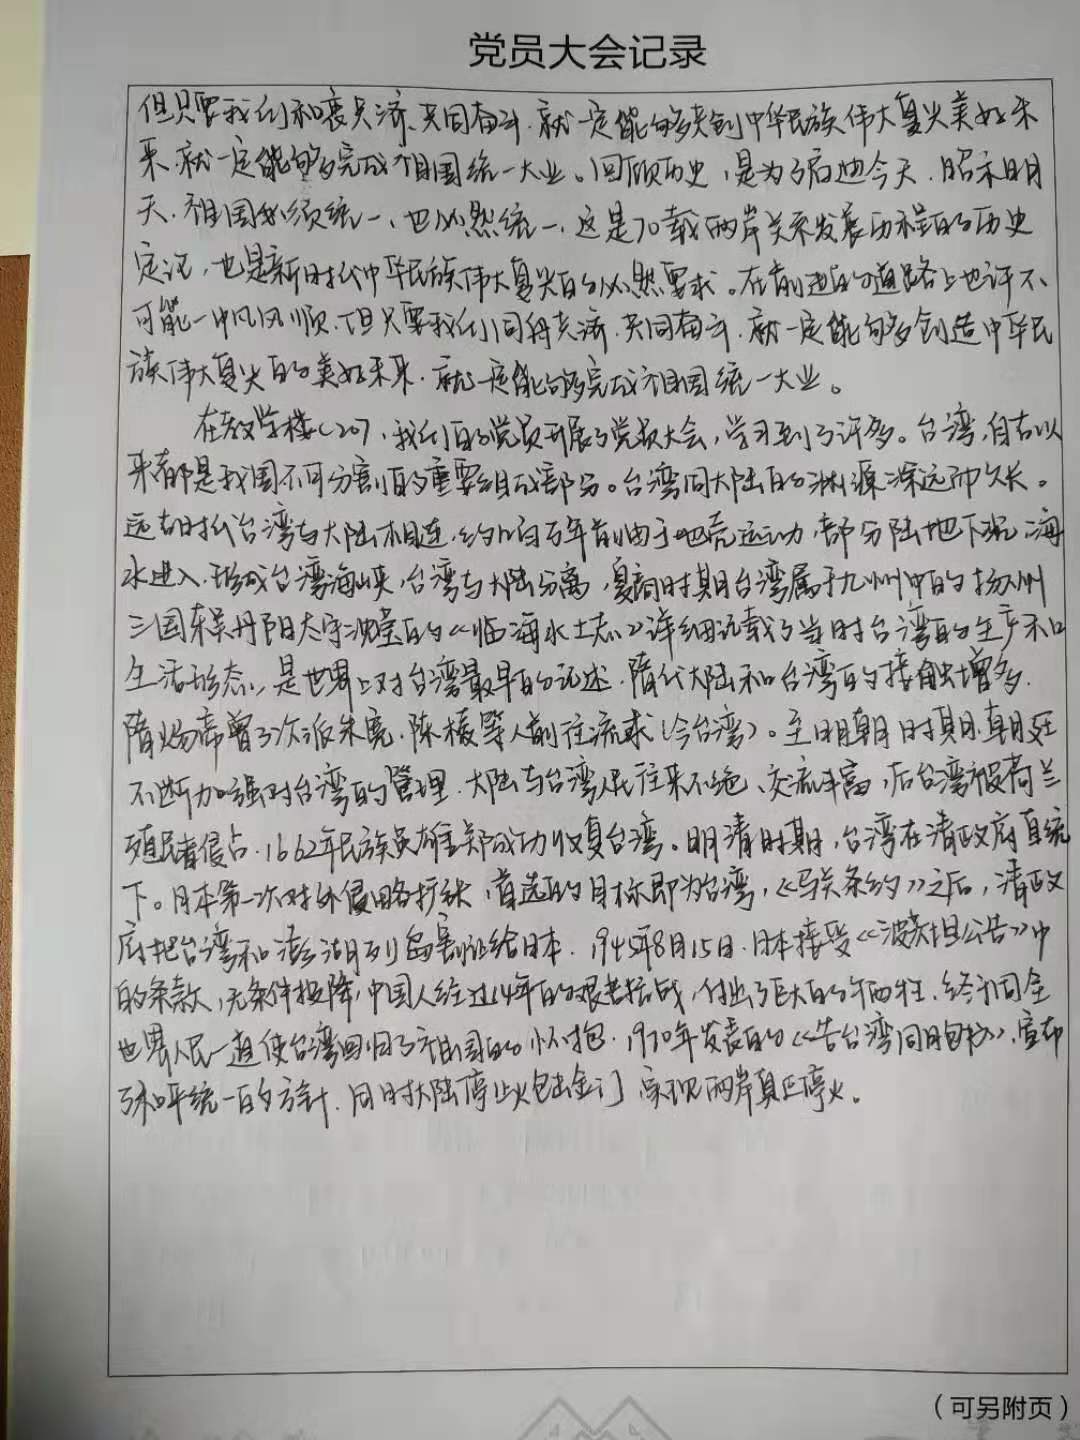 党员大会记录
但只要我们和衷共济、共同奋斗,就一定能够共创中华民族伟大复兴美好未
来,就一定能够完成祖国统一大业。回顾历史,是为了启迪今天、昭示明
天。祖国必须统一,也必然统一,这是70载两岸关系发展历程的历史
定论,也是新时代中华民族伟大复兴的必然要求。在前进的道路上也许不
可能一帆风顺,但只要我们同舟共济、共同奋斗,就一定能够创造中华民
族伟大复兴的美好未来,就一定能够完成祖国统一大业。
在教学楼C207,我们的党员开展了党员大会,学习到了许多。台湾,自古以
来都是我国不可分割的重要组成部分。台湾同大陆的渊源深远而久长。
远古时代台湾与大陆相连,约百万年前由于地壳运动,部分陆地下沉,海
水进入,形成台湾海峡,台湾与大陆分离,夏商时期台湾属于九州中的扬州
三国东吴丹阳太守沈莹的《临海水土志》详细记载了当时台湾的生产和
生活形态,是世界上对台湾最早的记述,隋代大陆和台湾的接触增多,
隋炀帝曾3次派朱宽、陈棱等人前往流求(今台湾)。至明朝时期,朝廷
不断加强对台湾的管理,大陆与台湾人民往来不绝、交流丰富,后台湾被荷兰
殖民者侵占,1662年民族英雄郑成功收复台湾。明清时期,台湾在清政府直统
下。日本第一次对外侵略扩张,首选的目标即为台湾,《马关条约》之后,清政
府把台湾和澎湖列岛割让给日本,1945年8月15日,日本接受《波茨坦公告》中
的条款,无条件投降,中国人经过14年的艰苦抗战,付出了巨大的牺牲,终于同全
世界人民一道使台湾回归了祖国的怀抱,1970年发表的《告台湾同胞书》,宣布
了和平统一的方针,同时大陆停止炮击金门,实现两岸真正停火。
(可另附页)